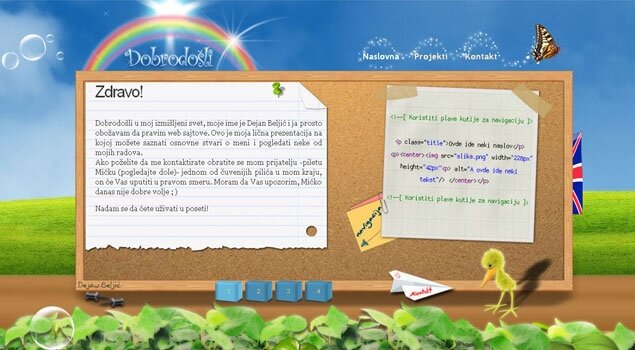 Dobrodošli
Naslovna Projekti Kontakt
Zdravo!
Dobrodošli u moj izmišljeni svet, moje ime je Dejan Beljić i ja prosto
obožavam da pravim web sajtove. Ovo je moja lična prezentacija na
kojoj možete saznati osnovne stvari o meni i pogledati neke od
mojih radova.
Ako poželite da me kontaktirate obratite se mom prijatelju -piletu
Mičku (pogledajte dole)- jednom od čuvenijih pilića u mom kraju,
on će Vas uputiti u pravom smeru. Moram da Vas upozorim, Mičko
danas nije dobre volje ; )
Nadam se da ćete uživati u poseti!
<!--[ Koristiti plave kutije za navigaciju ]-->
<p class="title">ovde ide neki naslov</p>
<p><center><img src="slika.png" width="228px"
height="42px"<p> alt="A ovde ide neki
tekst"/> </center></p>
<!--[ Koristiti plave kutije za navigaciju ]-->
navigacija
Kontakt
Dejan Beljić
1 2 3 4